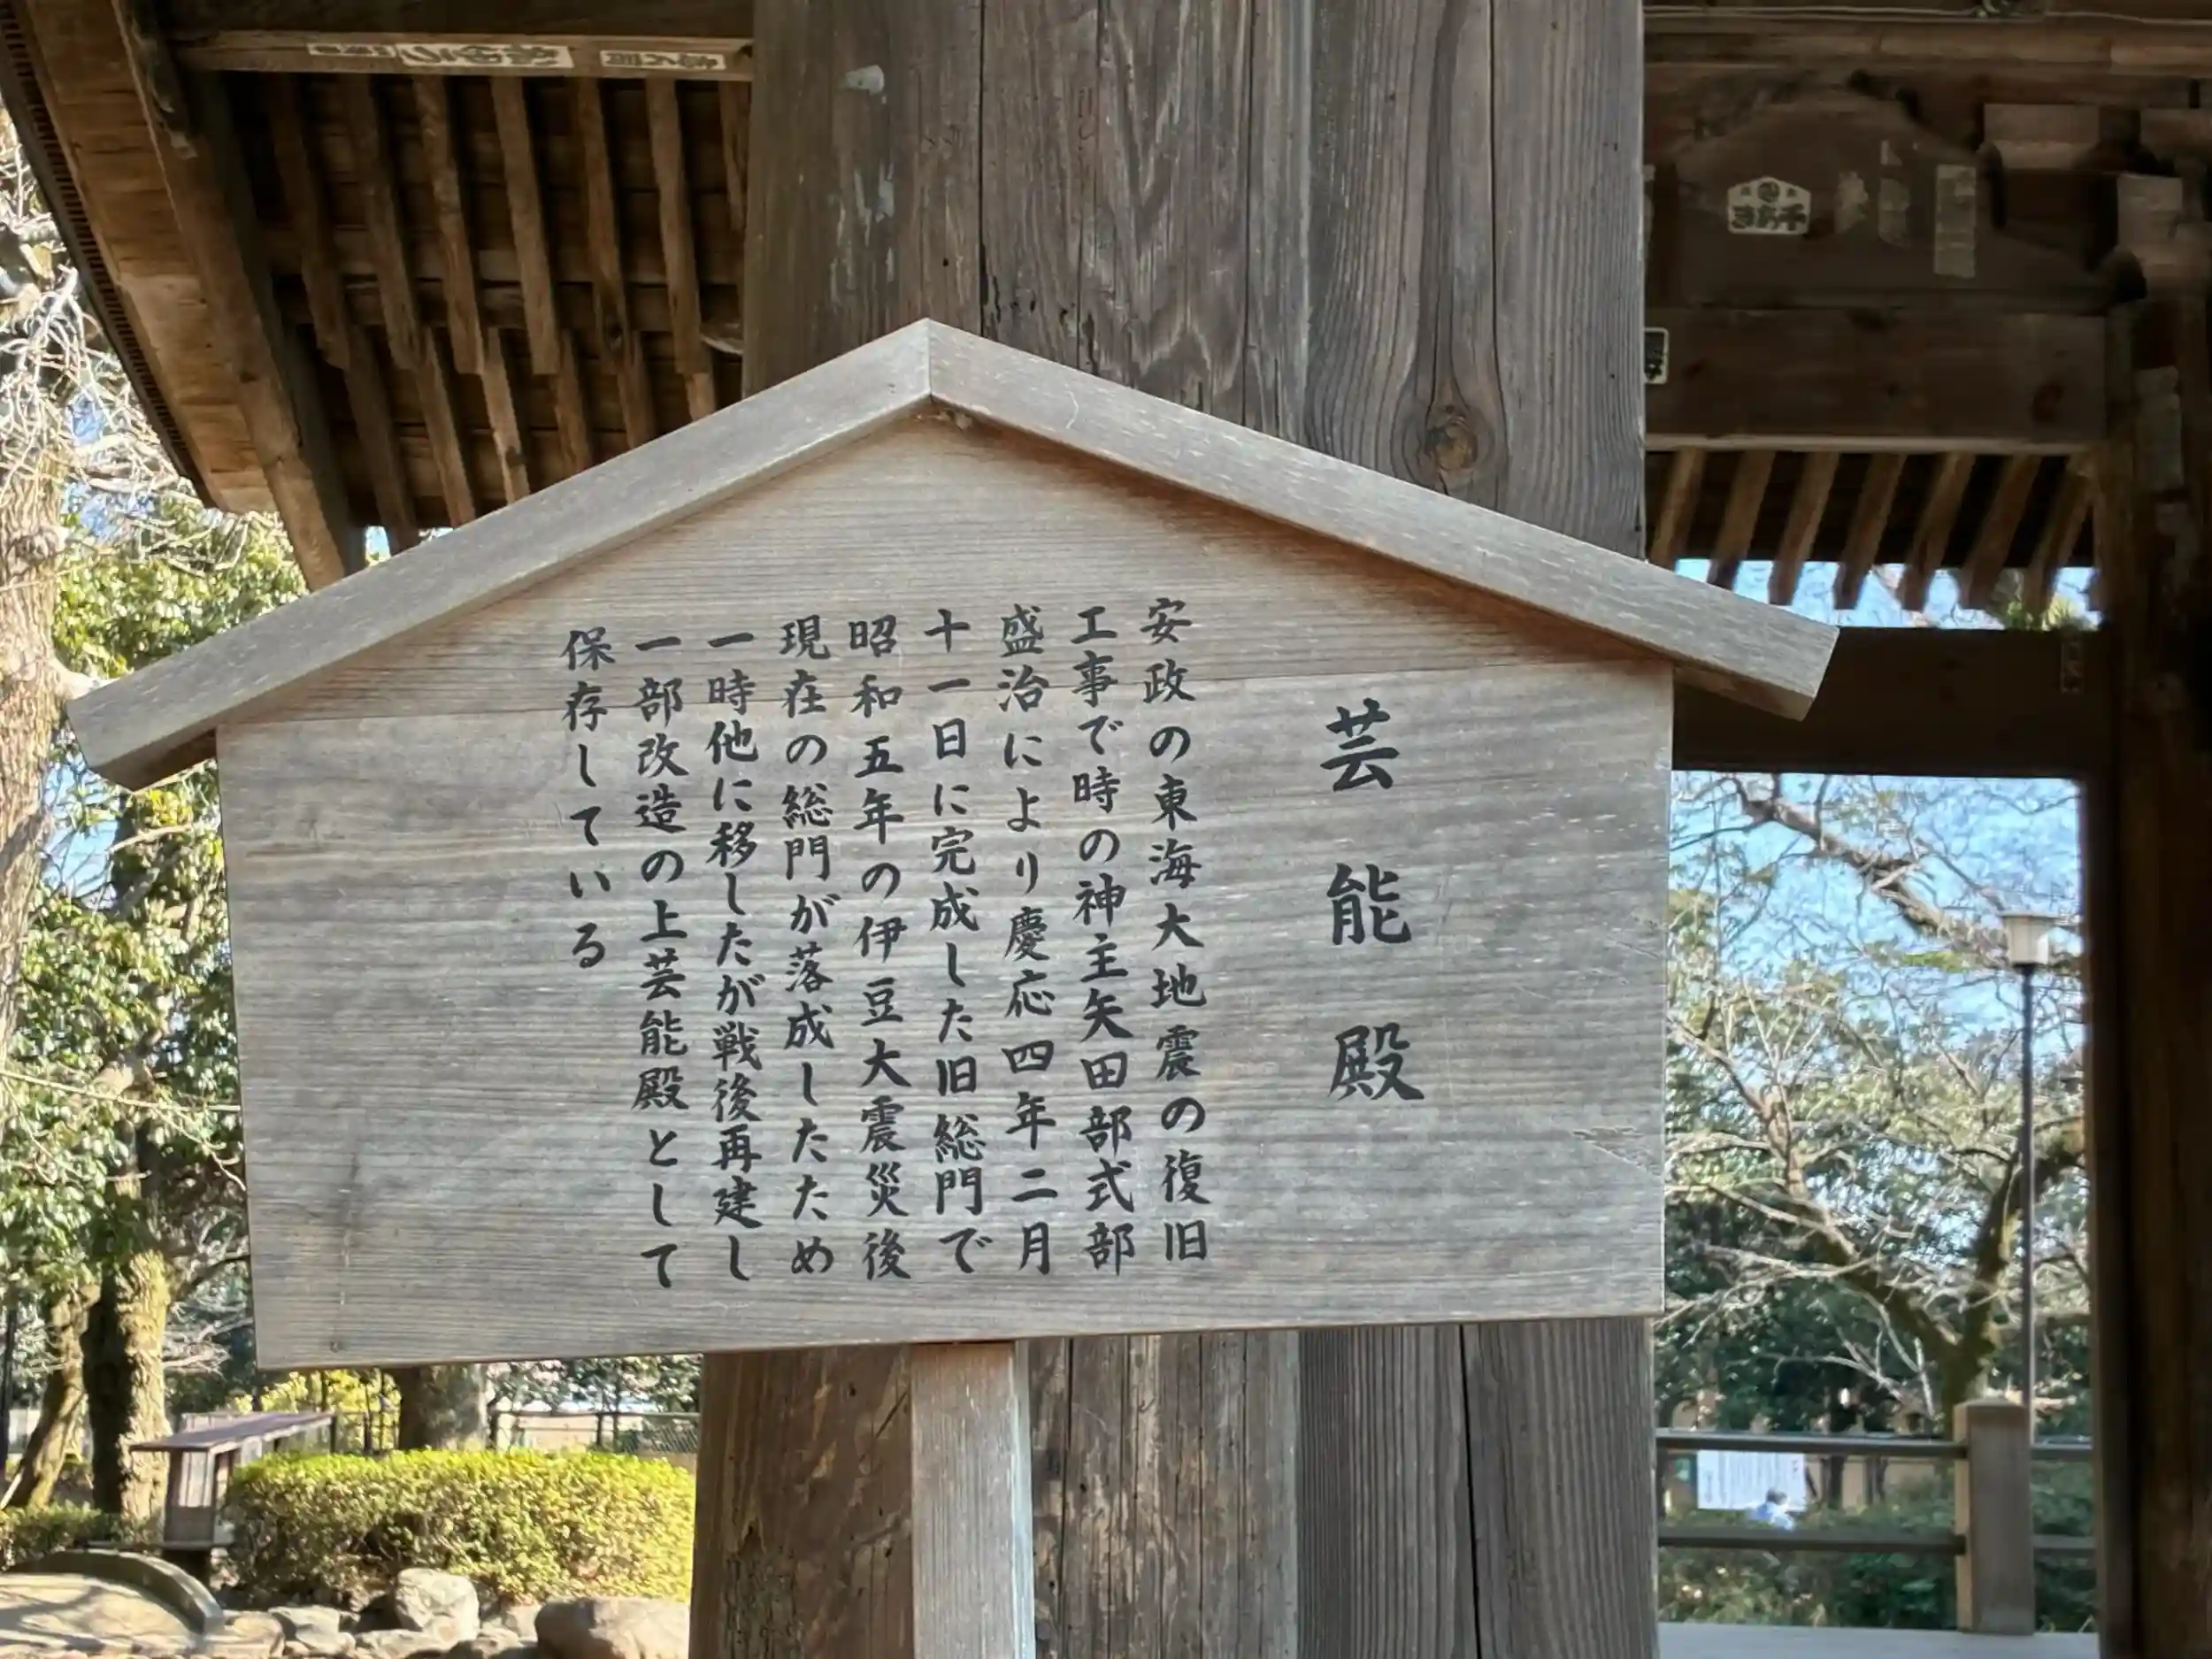 芸能殿
安政の東海大地震の復旧
工事で時の神主矢田部式部
盛治により慶応四年二月
十一日に完成した旧総門で
昭和五年の伊豆大震災後
現在の総門が落成したため
一時他に移したが戦後再建し
一部改造の上芸能殿として
保存している